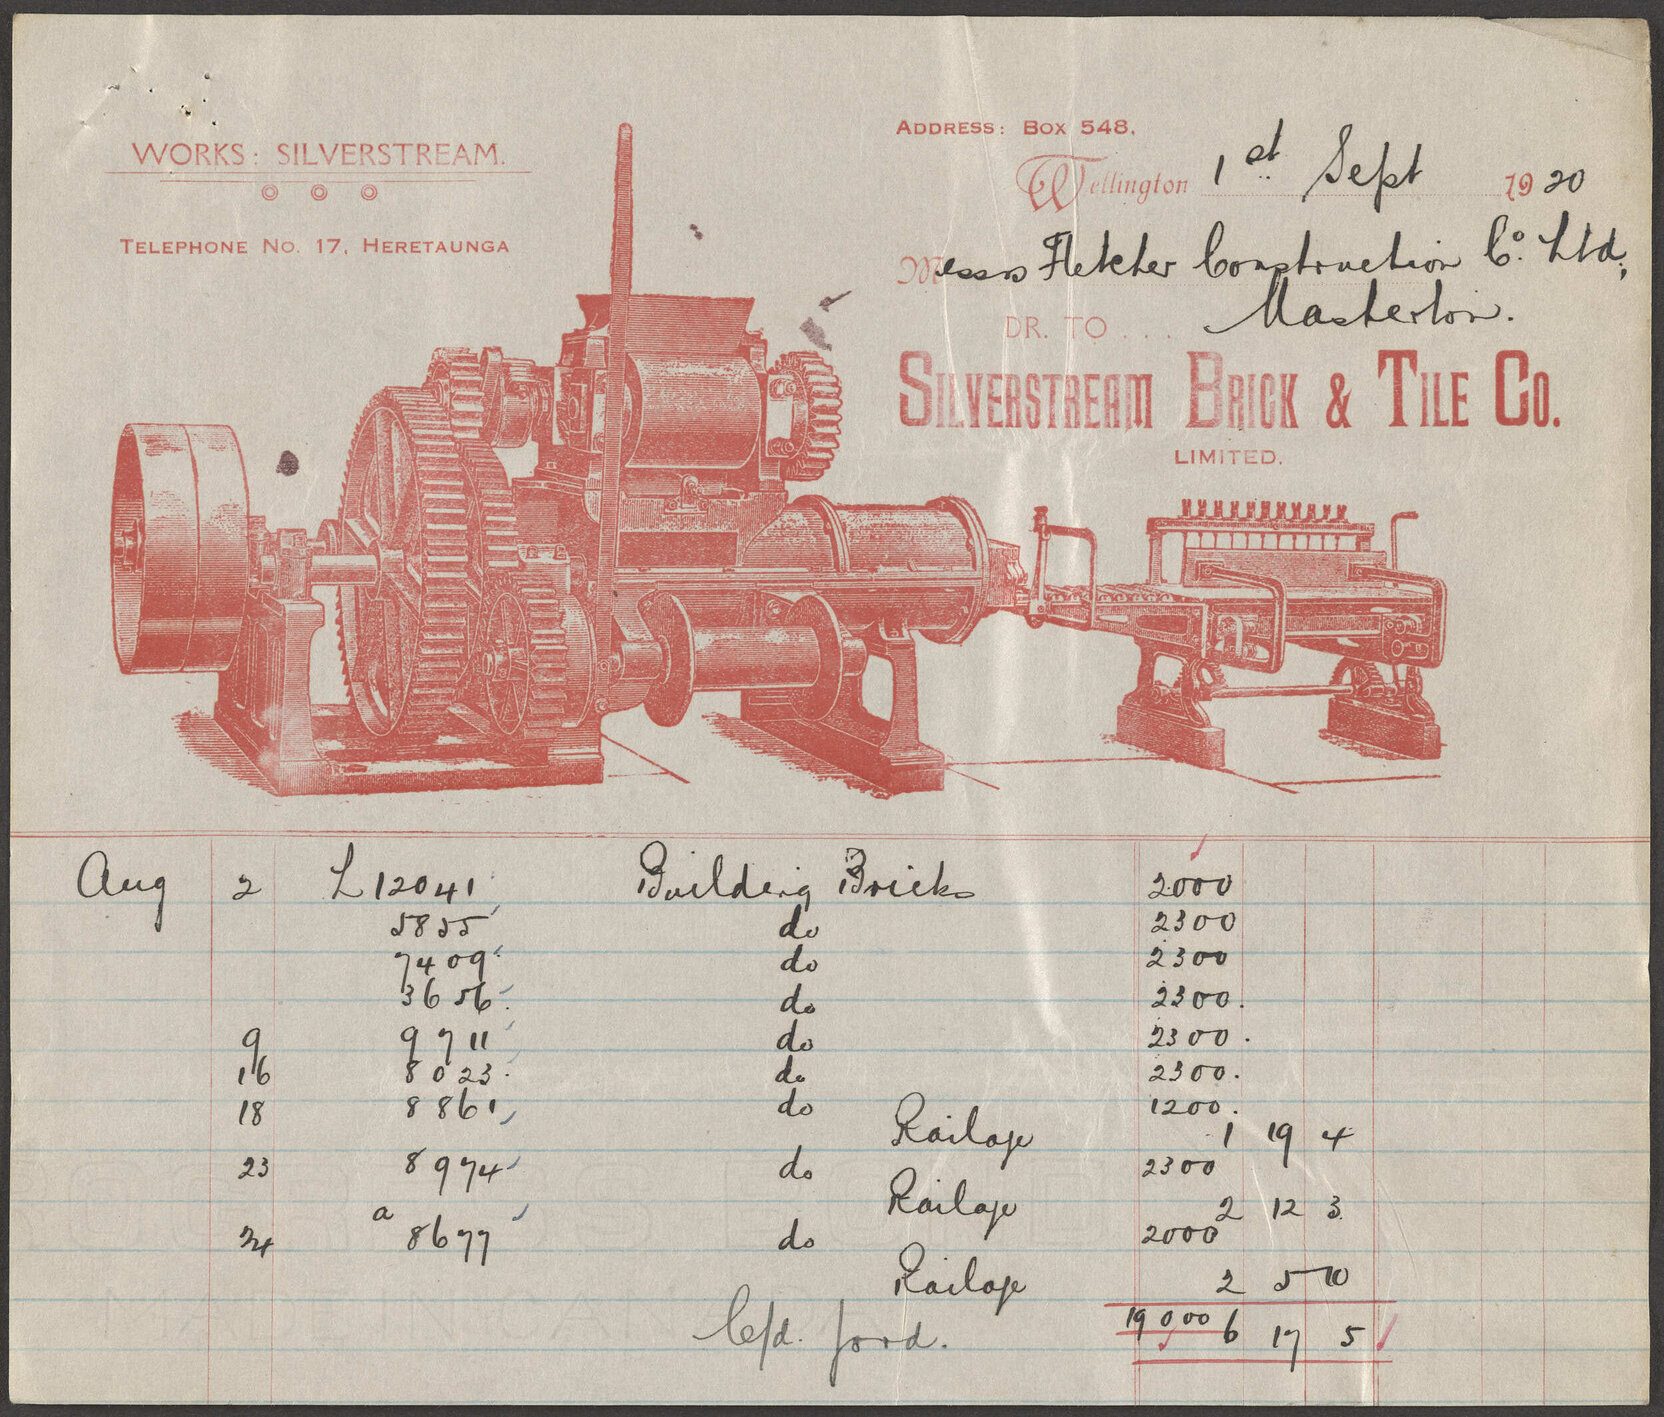 WORKS: SILVERSTREAM.
TELEPHONE NO. 17, HERETAUNGA
ADDRESS: BOX 548,
Wellington 1st Sept 1920
Messrs Fletcher Construction Co. Ltd,
Masterton.
DR. TO . . .
SILVERSTREAM BRICK & TILE CO.
LIMITED.
Aug 2 L12041 Building Bricks 2000
5855 do 2300
7409 do 2300
3656 do 2300.
9 9711 do 2300.
16 8023 do 2300.
18 8861 do 1200.
Railage 1 19 4
23 8974 do 2300
Railage 2 12 3
24 a 8677 do 2000
Railage 2 5 10
C/d. ford. 19000 6 17 5